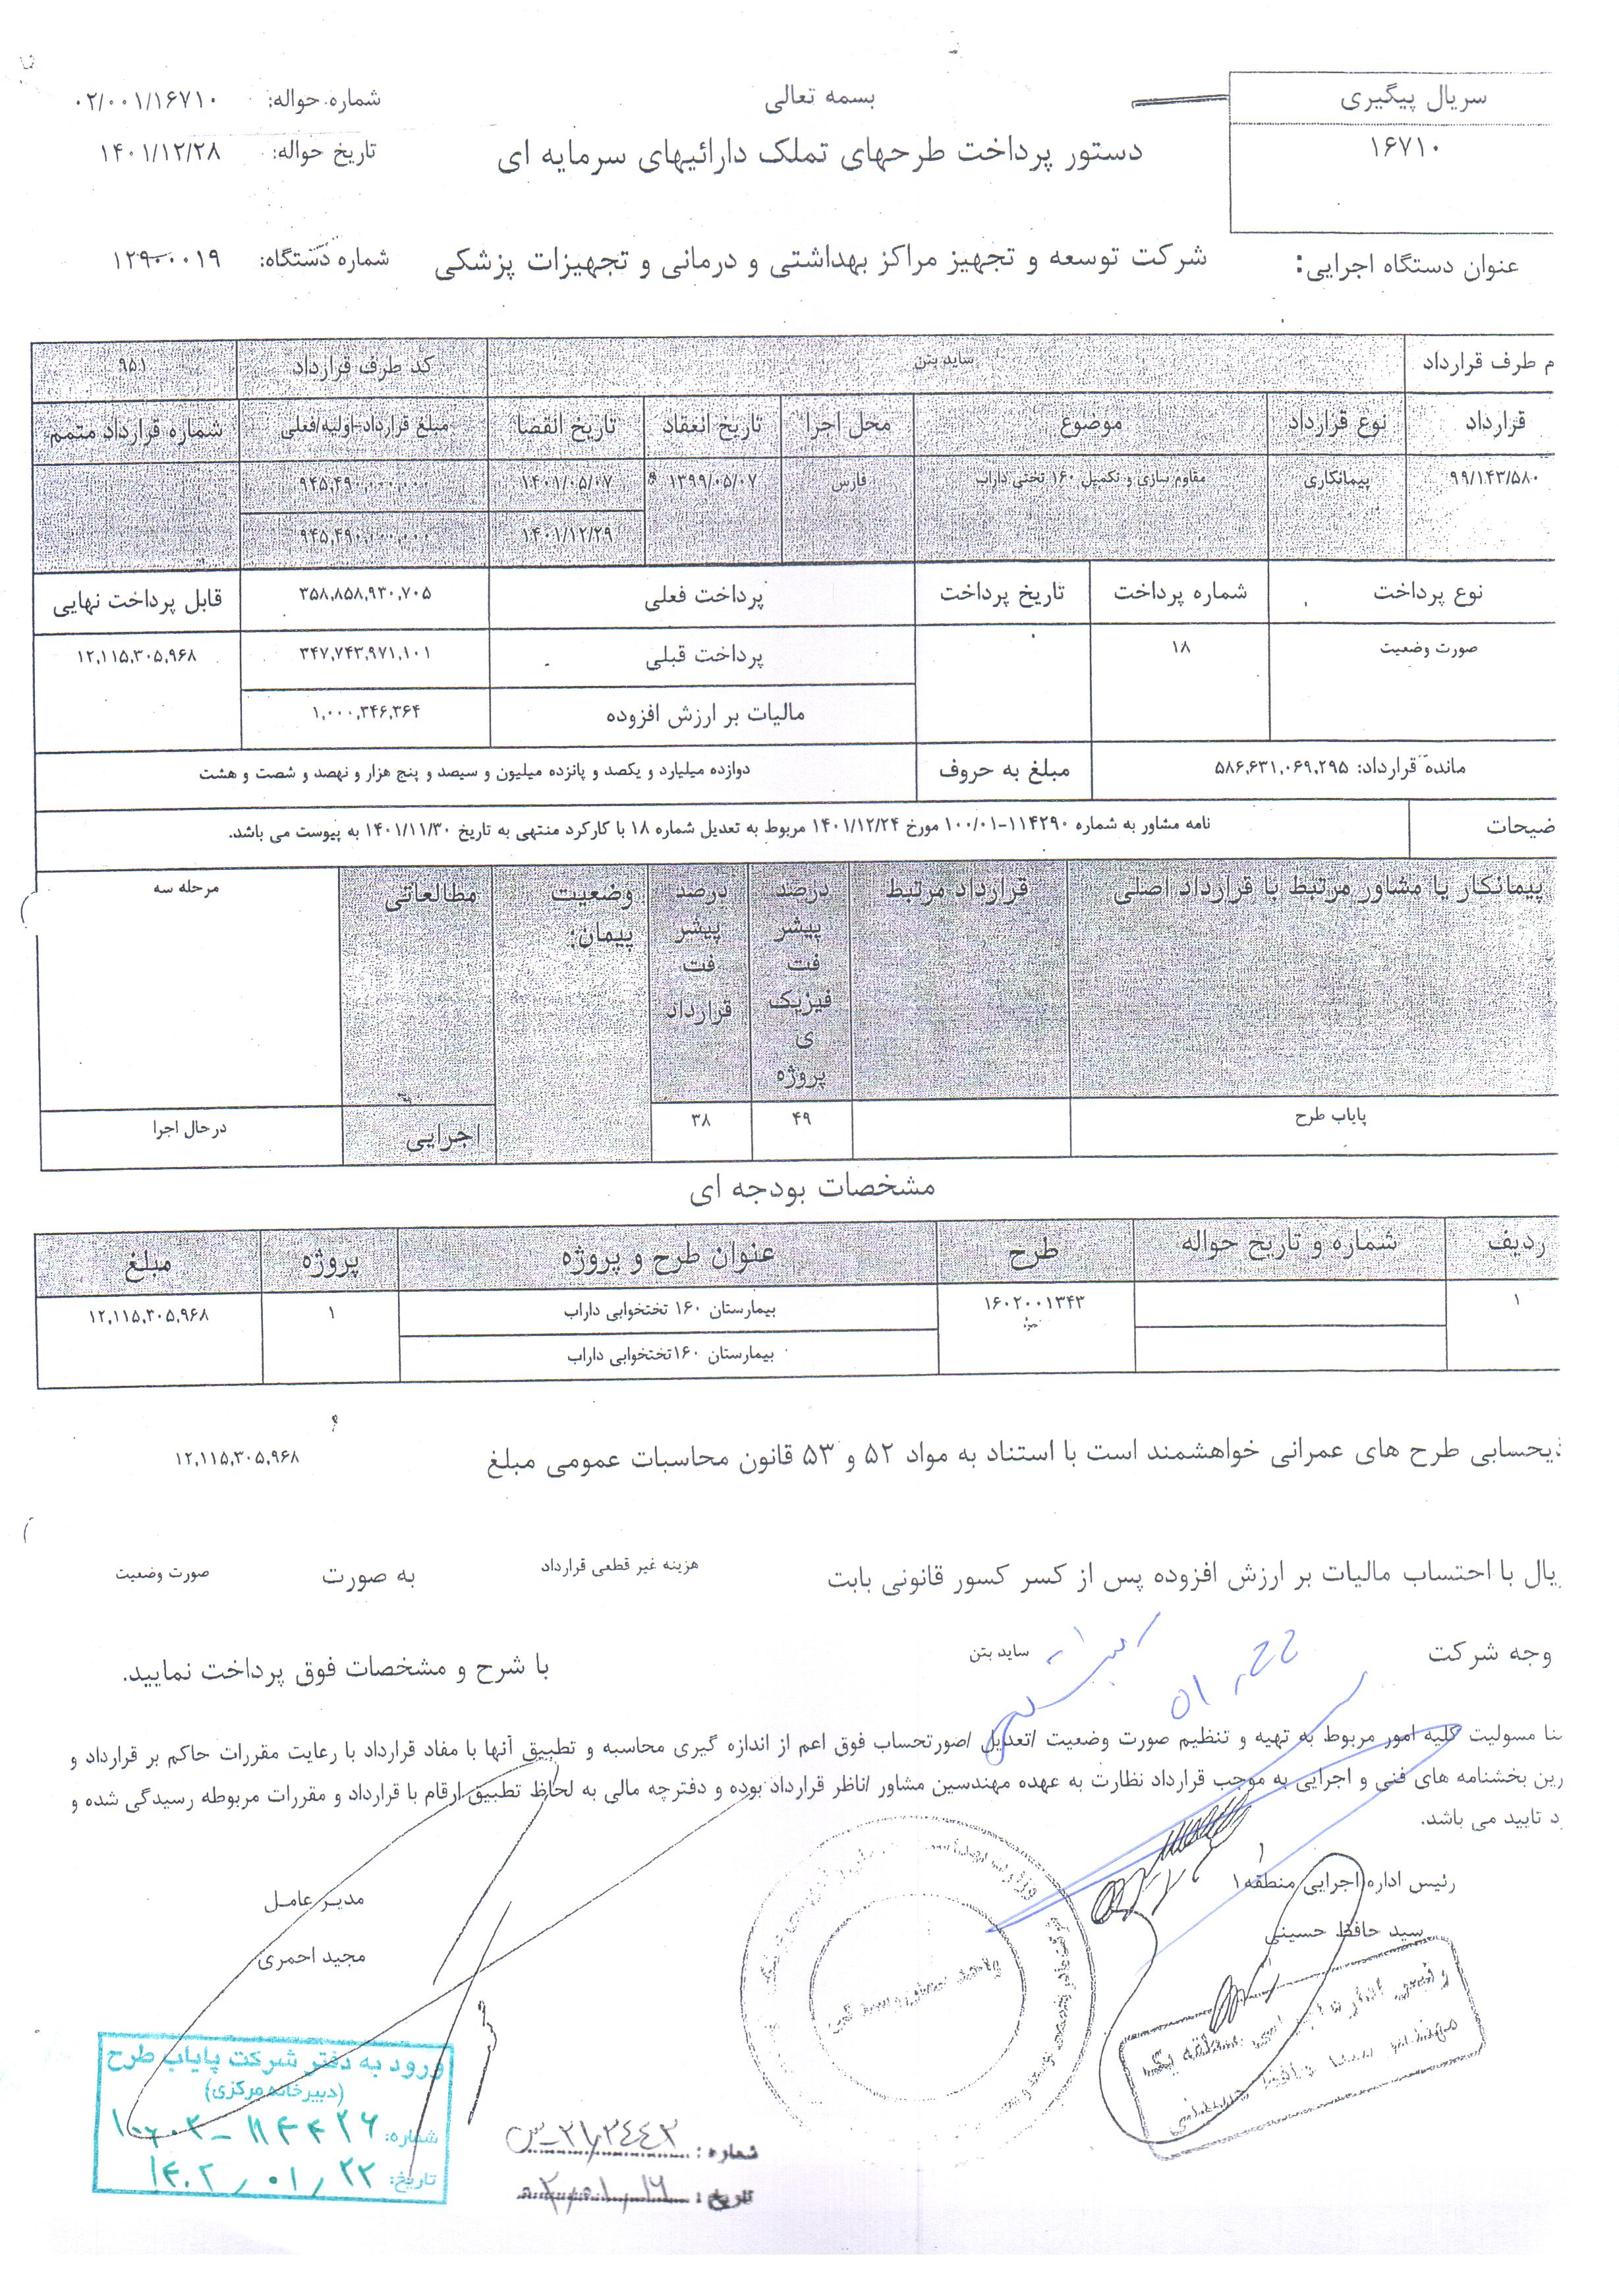 سریال پیگیری
۱۶۷۱۰
بسمه تعالی
دستور پرداخت طرحهای تملک دارائیهای سرمایه ای
شماره حواله: ۰۲/۰۰۱/۱۶۷۱۰
تاریخ حواله: ۱۴۰۱/۱۲/۲۸
عنوان دستگاه اجرایی: شرکت توسعه و تجهیز مراکز بهداشتی و درمانی و تجهیزات پزشکی شماره دستگاه: ۱۲۹۰۰۰۱۹
م طرف قرارداد ساید بتن کد طرف قرارداد ۹۵۱
قرارداد نوع قرارداد موضوع محل اجرا تاریخ انعقاد تاریخ انقضا مبلغ قرارداد-اولیه/فعلی شماره قرارداد متمم
۹۹/۱۴۳/۵۸۰ پیمانکاری مقاوم سازی و تکمیل ۱۶۰ تختی داراب فارس ۱۳۹۹/۰۵/۰۷ ۱۴۰۱/۰۵/۰۷ ۹۴۵,۴۹۰,۰۰۰,۰۰۰
۱۴۰۱/۱۲/۲۹ ۹۴۵,۴۹۰,۰۰۰,۰۰۰
نوع پرداخت شماره پرداخت تاریخ پرداخت پرداخت فعلی ۳۵۸,۸۵۸,۹۳۰,۷۰۵ قابل پرداخت نهایی
صورت وضعیت ۱۸ پرداخت قبلی ۳۴۷,۷۴۳,۹۷۱,۱۰۱ ۱۲,۱۱۵,۳۰۵,۹۶۸
مالیات بر ارزش افزوده ۱,۰۰۰,۳۴۶,۳۶۴
مانده قرارداد: ۵۸۶,۶۳۱,۰۶۹,۲۹۵ مبلغ به حروف دوازده میلیارد و یکصد و پانزده میلیون و سیصد و پنج هزار و نهصد و شصت و هشت
ضیحات نامه مشاور به شماره ۱۱۴۲۹۰-۱۰۰/۰۱ مورخ ۱۴۰۱/۱۲/۲۴ مربوط به تعدیل شماره ۱۸ با کارکرد منتهی به تاریخ ۱۴۰۱/۱۱/۳۰ به پیوست می باشد.
پیمانکار یا مشاور مرتبط با قرارداد اصلی قرارداد مرتبط درصد پیشرفت فیزیکی پروژه درصد پیشرفت قرارداد وضعیت پیمان: مطالعاتی مرحله سه
پایاب طرح ۴۹ ۳۸ اجرایی درحال اجرا
مشخصات بودجه ای
ردیف شماره و تاریخ حواله طرح عنوان طرح و پروژه پروژه مبلغ
۱ ۱۶۰۲۰۰۱۳۴۳ بیمارستان ۱۶۰ تختخوابی داراب ۱ ۱۲,۱۱۵,۳۰۵,۹۶۸
بیمارستان ۱۶۰تختخوابی داراب
ذیحسابی طرح های عمرانی خواهشمند است با استناد به مواد ۵۲ و ۵۳ قانون محاسبات عمومی مبلغ ۱۲,۱۱۵,۳۰۵,۹۶۸
ریال با احتساب مالیات بر ارزش افزوده پس از کسر کسور قانونی بابت هزینه غیر قطعی قرارداد به صورت صورت وضعیت
وجه شرکت ساید بتن با شرح و مشخصات فوق پرداخت نمایید.
منا مسولیت کلیه امور مربوط به تهیه و تنظیم صورت وضعیت /تعدیل /صورتحساب فوق اعم از اندازه گیری محاسبه و تطبیق آنها با مفاد قرارداد با رعایت مقررات حاکم بر قرارداد و
رین بخشنامه های فنی و اجرایی به موجب قرارداد نظارت به عهده مهندسین مشاور /ناظر قرارداد بوده و دفترچه مالی به لحاظ تطبیق ارقام با قرارداد و مقررات مربوطه رسیدگی شده و
د تایید می باشد.
رئیس اداره اجرایی منطقه۱
سید حافظ حسینی
مدیر عامل
مجید احمری
رئیس اداره اجرایی منطقه یک
مهندس سید حافظ حسینی
ورود به دفتر شرکت پایاب طرح
(دبیرخانه مرکزی)
شماره:
تاریخ: ۱۴۰۲/۰۱/۲۲
شماره:
تاریخ: